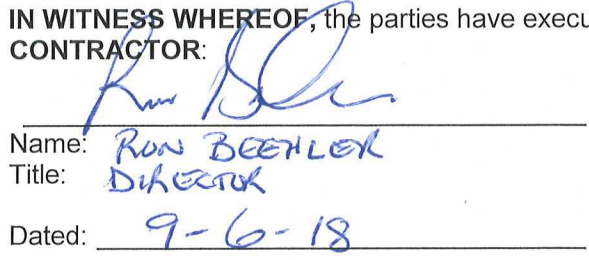 IN WITNESS WHEREOF, the parties have execu
CONTRACTOR:
Name: RON BEEHLER
Title: DIRECTOR
Dated: 9-6-18